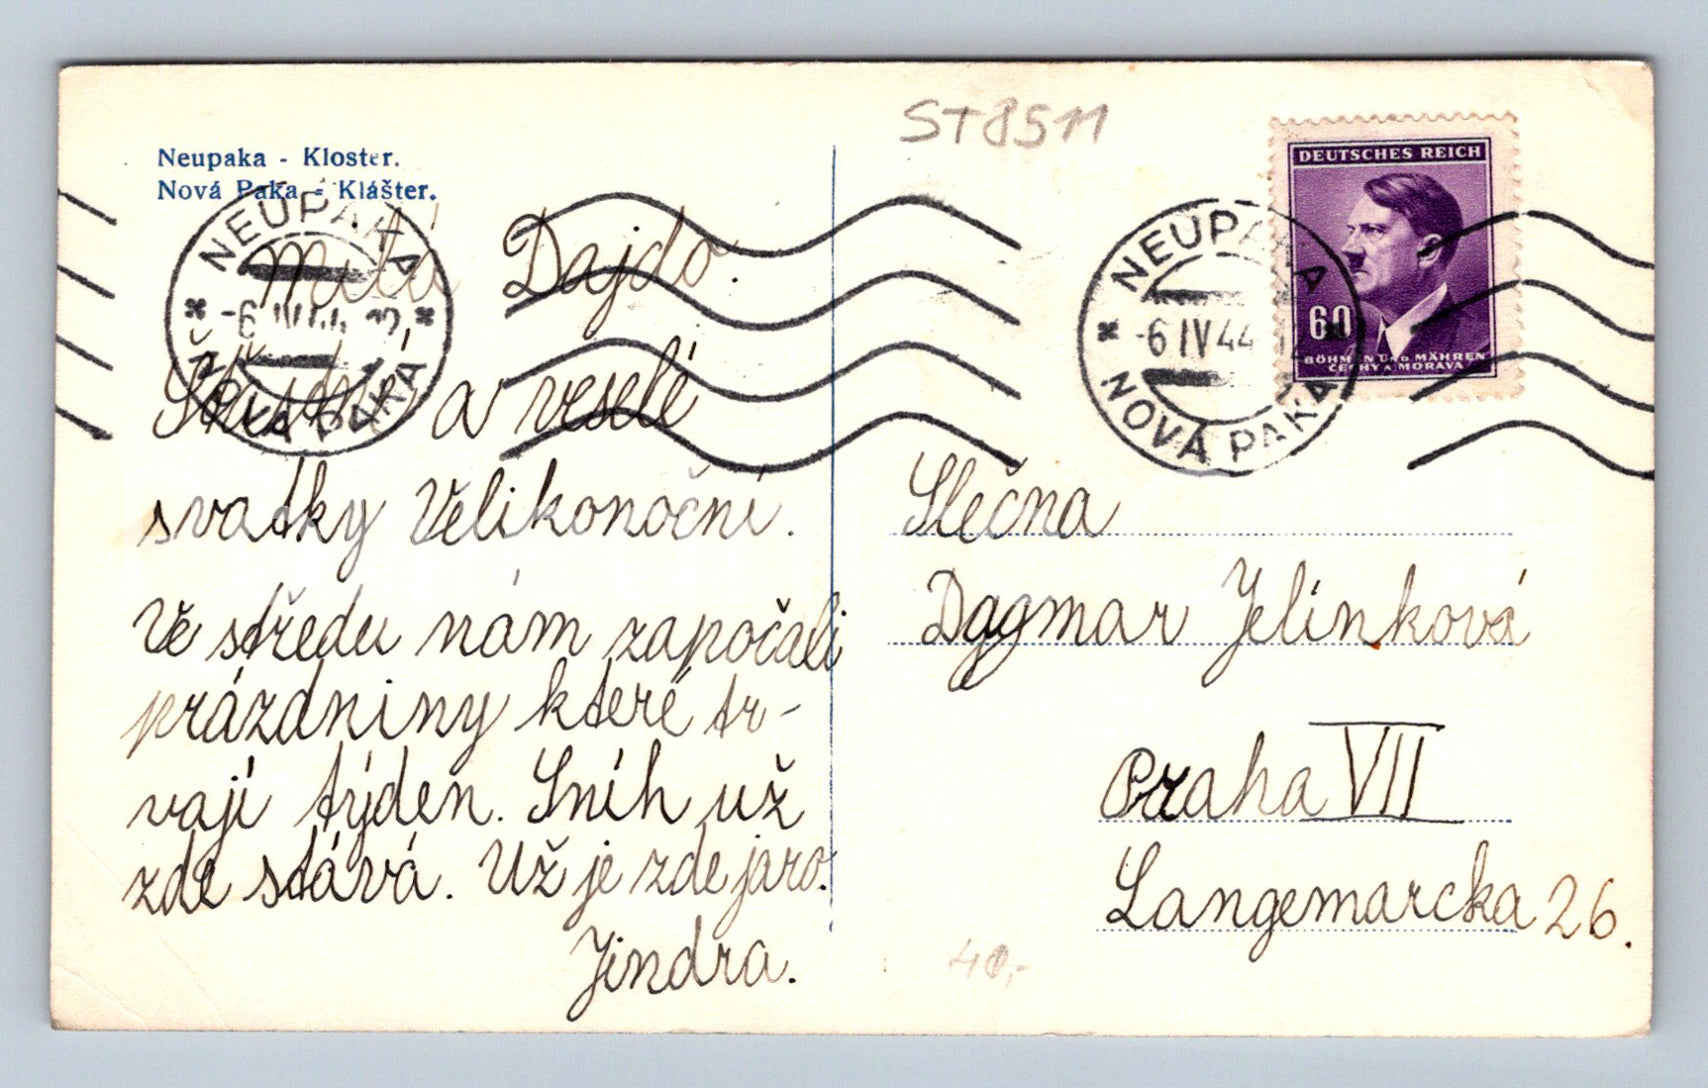 Neupaka - Kloster.
Nová Paka - Klášter.
ST8511
DEUTSCHES REICH
60
BÖHMEN UND MÄHREN
ČECHY A MORAVA
NEUPAKA
NOVÁ PAKA
NEUPAKA
-6 IV 44
NOVÁ PAKA
Milá Dajdo.
Šťastné a veselé
svatky Velikonoční.
Ve středu nám započali
prázdniny které tr-
vají týden. Sníh už
zde stává. Už je zde jaro.
Jindra.
Slečna
Dagmar Jelínková
Praha VII
Langemarcka 26.
40,-